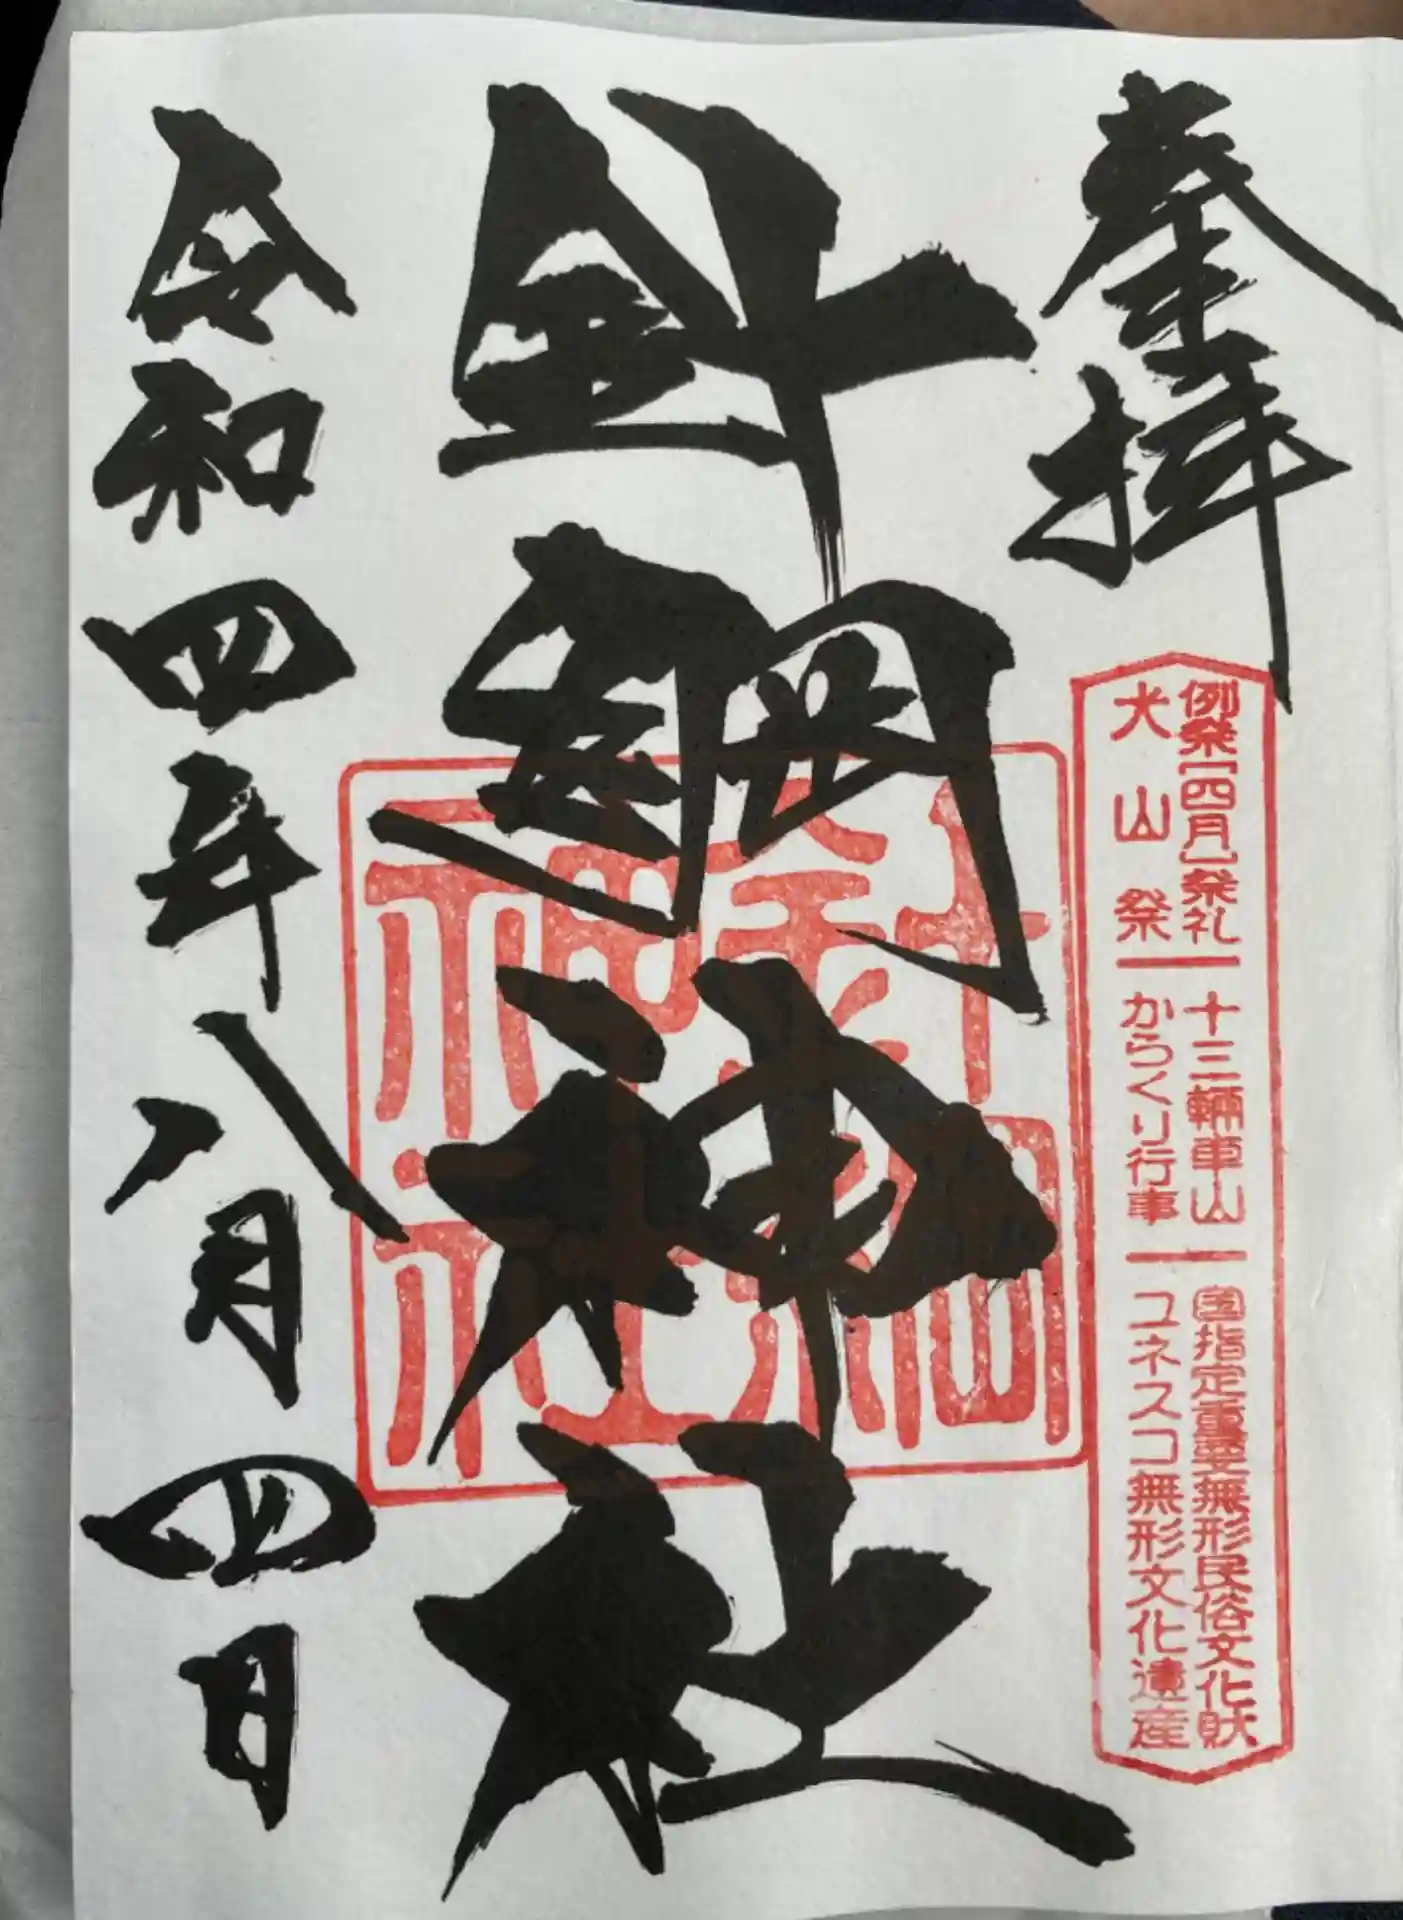 奉拝
例祭［四月］祭礼 十三輛車山 国指定重要無形民俗文化財
犬山祭 からくり行事 ユネスコ無形文化遺産
針綱神社
針綱
神社
令和四年八月四日